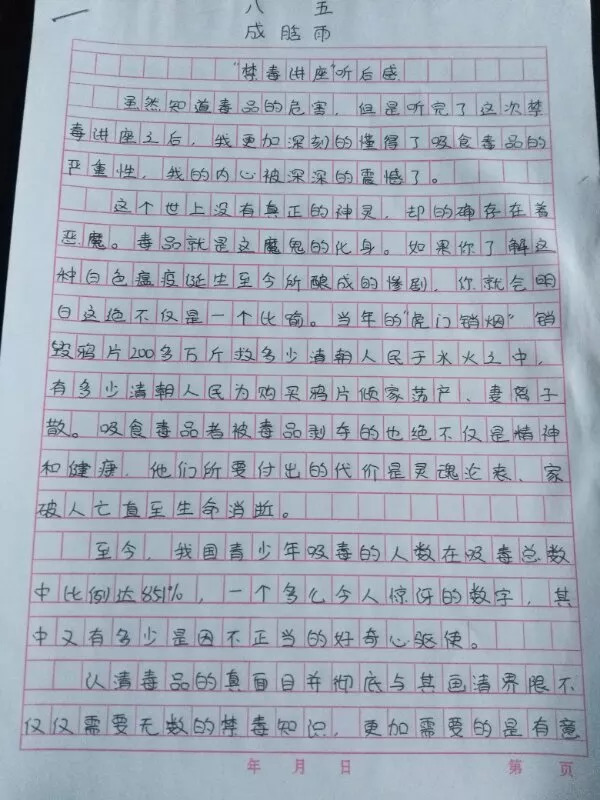 八 五
成皓雨
“禁毒讲座”听后感
虽然知道毒品的危害，但是听完了这次禁
毒讲座之后，我更加深刻的懂得了吸食毒品的
严重性，我的内心被深深的震憾了。
这个世上没有真正的神灵，却的确存在着
恶魔。毒品就是这魔鬼的化身。如果你了解这
种白色瘟疫诞生至今所酿成的惨剧，你就会明
白这绝不仅是一个比喻。当年的“虎门销烟”销
毁鸦片200多万斤救多少清朝人民于水火之中，
有多少清朝人民为购买鸦片倾家荡产、妻离子
散。吸食毒品者被毒品剥夺的也绝不仅是精神
和健康，他们所要付出的代价是灵魂沦丧、家
破人亡直至生命消断。
至今，我国青少年吸毒的人数在吸毒总数
中比例达851%，一个多么令人惊讶的数字，其
中又有多少是因不正当的好奇心驱使。
认清毒品的真面目并彻底与其画清界限不
仅仅需要无数的禁毒知识，更加需要的是有意
年 月 日 第 页